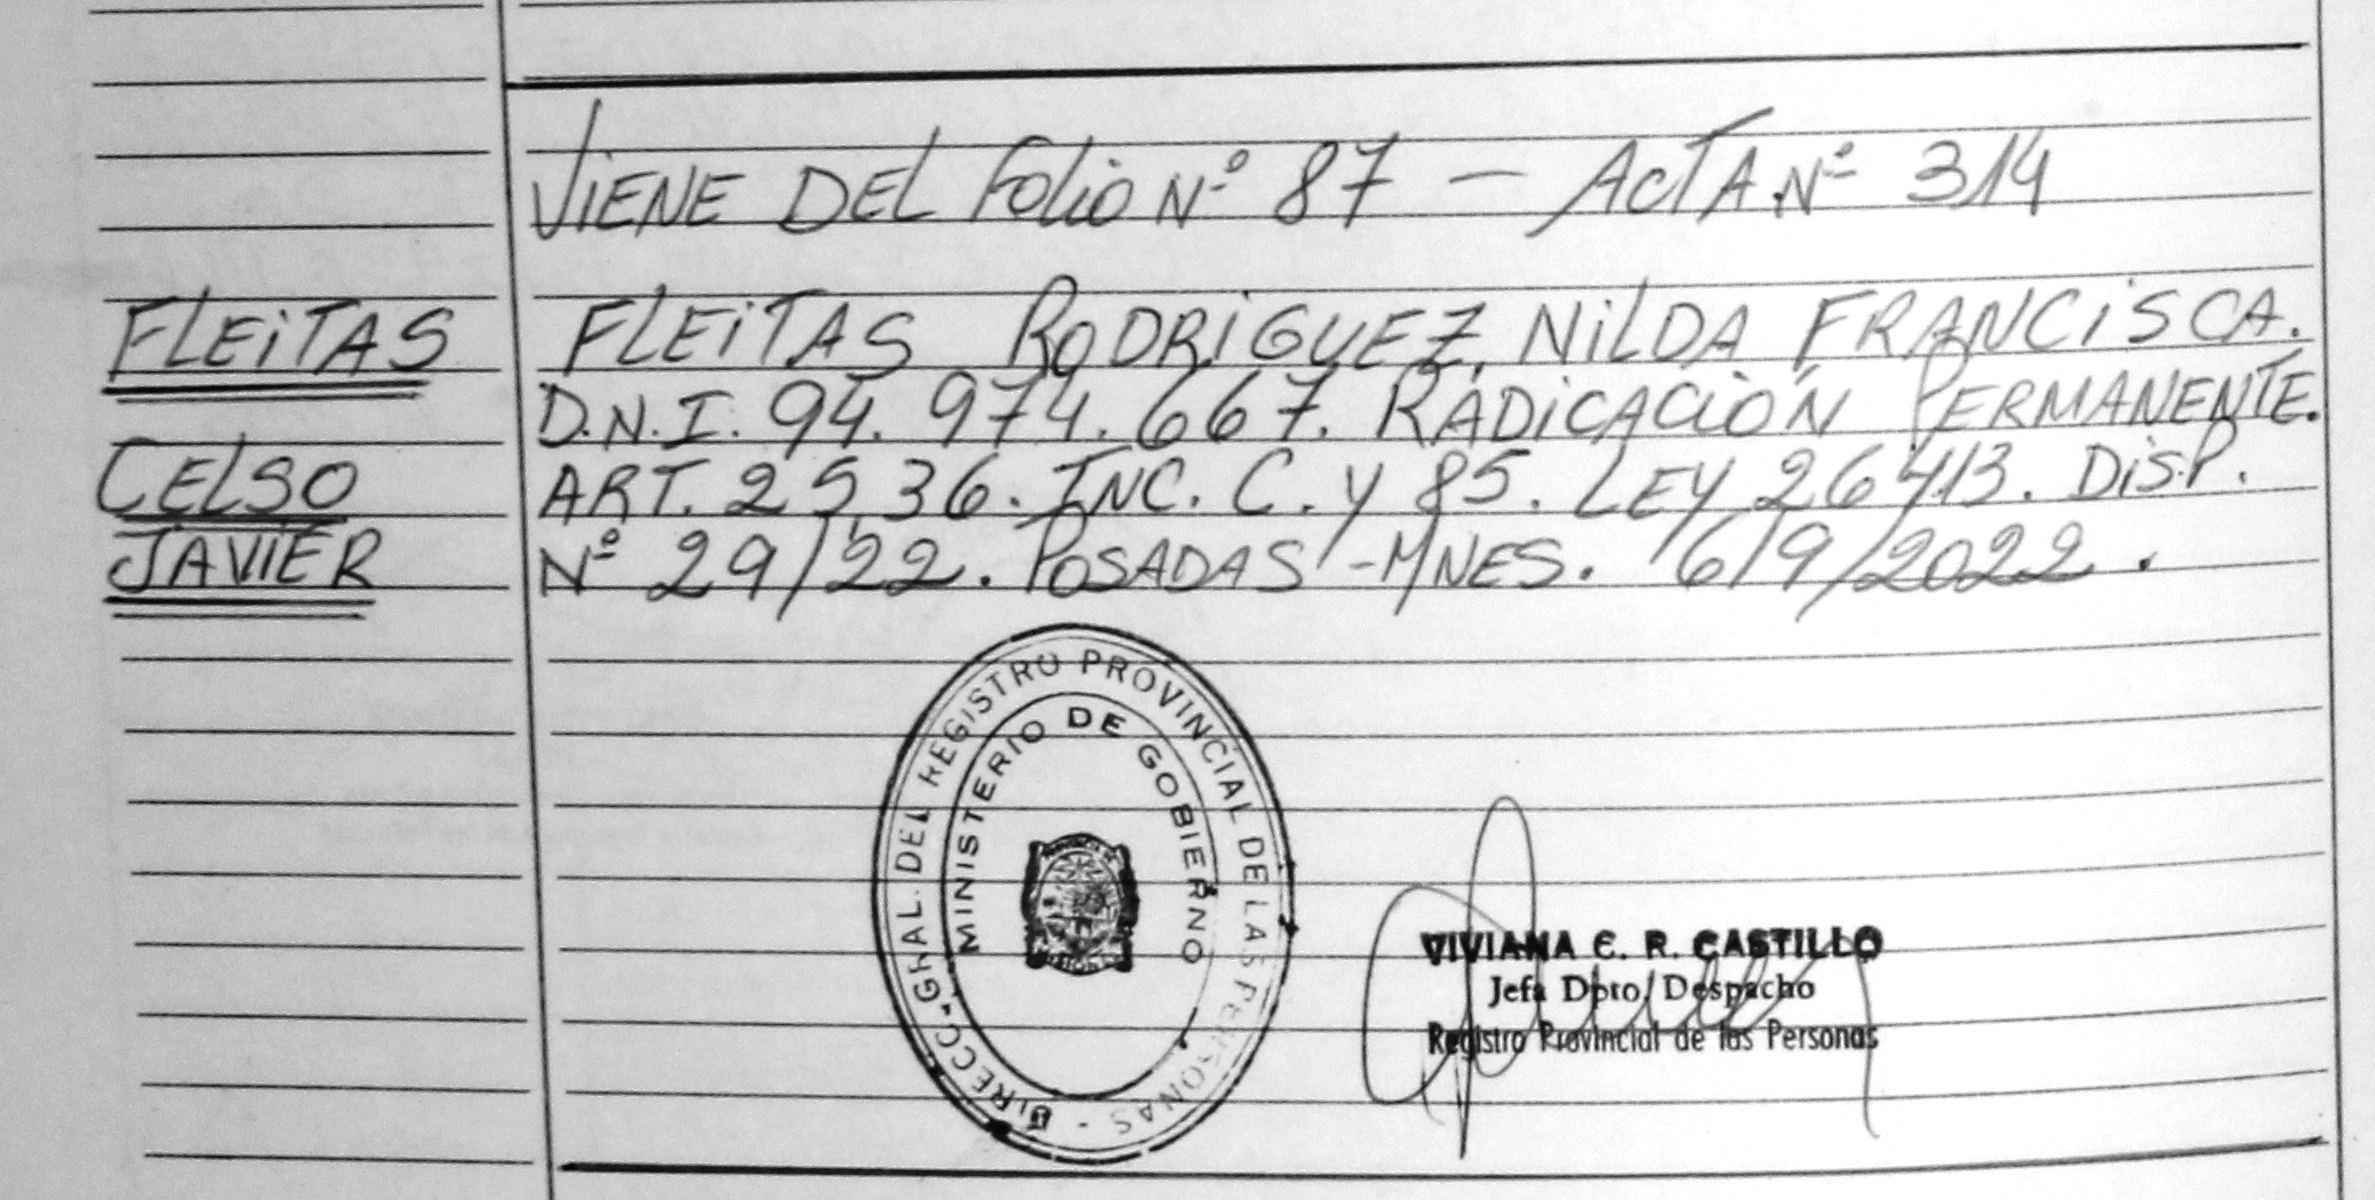 VIENE DEL FOLIO Nº 87 — ACTA Nº 314
FLEITAS
CELSO
JAVIER
FLEITAS RODRIGUEZ, NILDA FRANCISCA.
D.N.I. 94.974.667. RADICACIÓN PERMANENTE.
ART. 25,36. INC. C. Y 85. LEY 26413. DISP.
Nº 29/22. POSADAS -MNES. 6/9/2022.
DIRECC. GRAL. DEL REGISTRO PROVINCIAL DE LAS PERSONAS -
MINISTERIO DE GOBIERNO
VIVIANA C. R. CASTILLO
Jefa Dpto. Despacho
Registro Provincial de las Personas